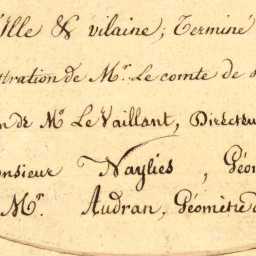 Ille & vilaine; Terminé
tration de Mr. Le comte de
de Mr. Le Vaillant, Directeu
onsieur Naylies, Géo
Mr. Audran, Géomètre